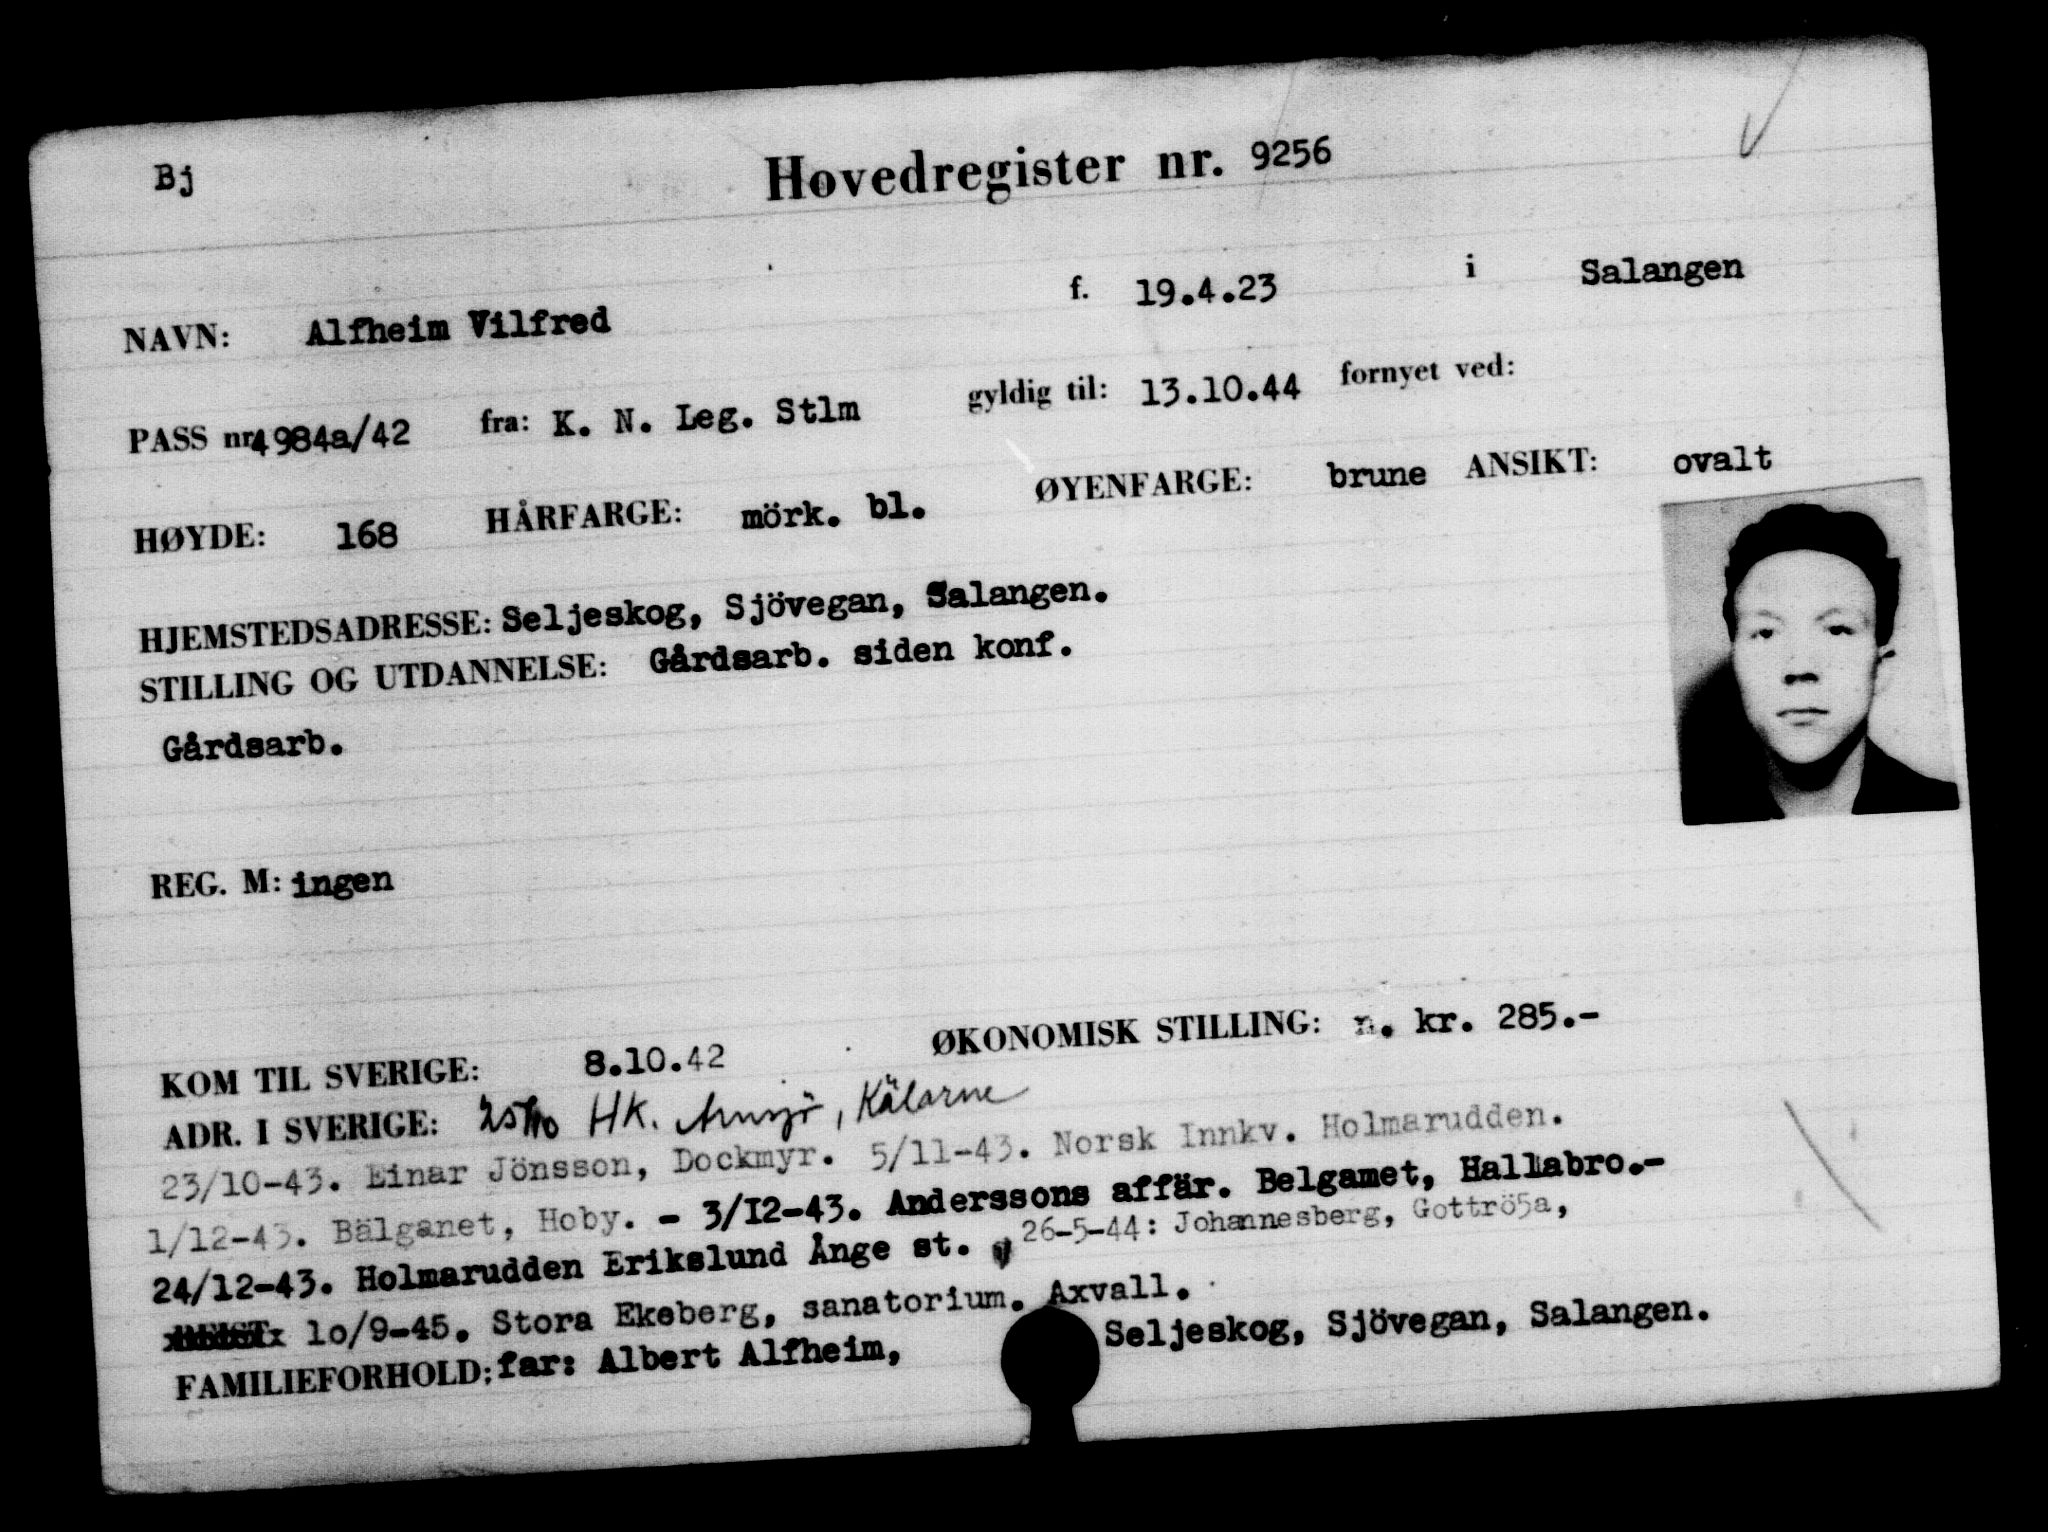 Bj
Hovedregister nr. 9256
NAVN: Alfheim Vilfred f. 19.4.23 i Salangen
PASS nr. 4984a/42 fra: K. N. Leg. Stlm gyldig til: 13.10.44 fornyet ved:
HØYDE: 168 HÅRFARGE: mörk. bl. ØYENFARGE: brune ANSIKT: ovalt
HJEMSTEDSADRESSE: Seljeskog, Sjövegan, Salangen.
STILLING OG UTDANNELSE: Gårdsarb. siden konf.
Gårdsarb.
REG. M: ingen
KOM TIL SVERIGE: 8.10.42 ØKONOMISK STILLING: n. kr. 285.-
ADR. I SVERIGE: HK. , Kälarne
23/10-43. Einar Jönsson, Dockmyr. 5/11-43. Norsk Innkv. Holmarudden.
1/12-43. Bälganet, Hoby. - 3/I2-43. Anderssons affär. Belgamet, Hallabro.-
24/12-43. Holmarudden Erikslund Ånge st. 26-5-44: Johannesberg, Gottrö5a,
lo/9-45. Stora Ekeberg, sanatorium. Axvall.
FAMILIEFORHOLD: far: Albert Alfheim, Seljeskog, Sjövegan, Salangen.